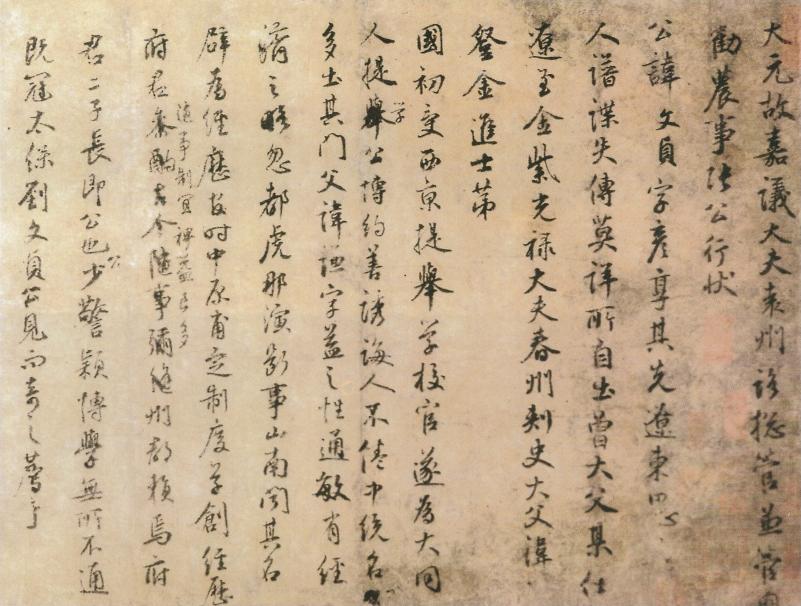 大元故嘉議大夫袁州路總管兼管內
勸農事張公行狀
公諱文貞字彥享其先遼東
人譜諜失傳莫詳所自出曾大父某仕
遼至金紫光祿大夫春州刺史大父諱
登金進士第
國初受西京提舉學校官遂為大同
人提舉學公博約善誘誨人不倦中統名
多出其門父諱謙字益之性通敏有經
濟之略忽都虎那演斷事山南聞其名
辟為經歷政時中原甫定制度草創經歷
隨事制宜裨益良多
府君參酌古今隨事彌縫州郡賴焉府
君二子長即公也公少警穎博學無所不通
既冠太保劉文貞公見而奇之薦于